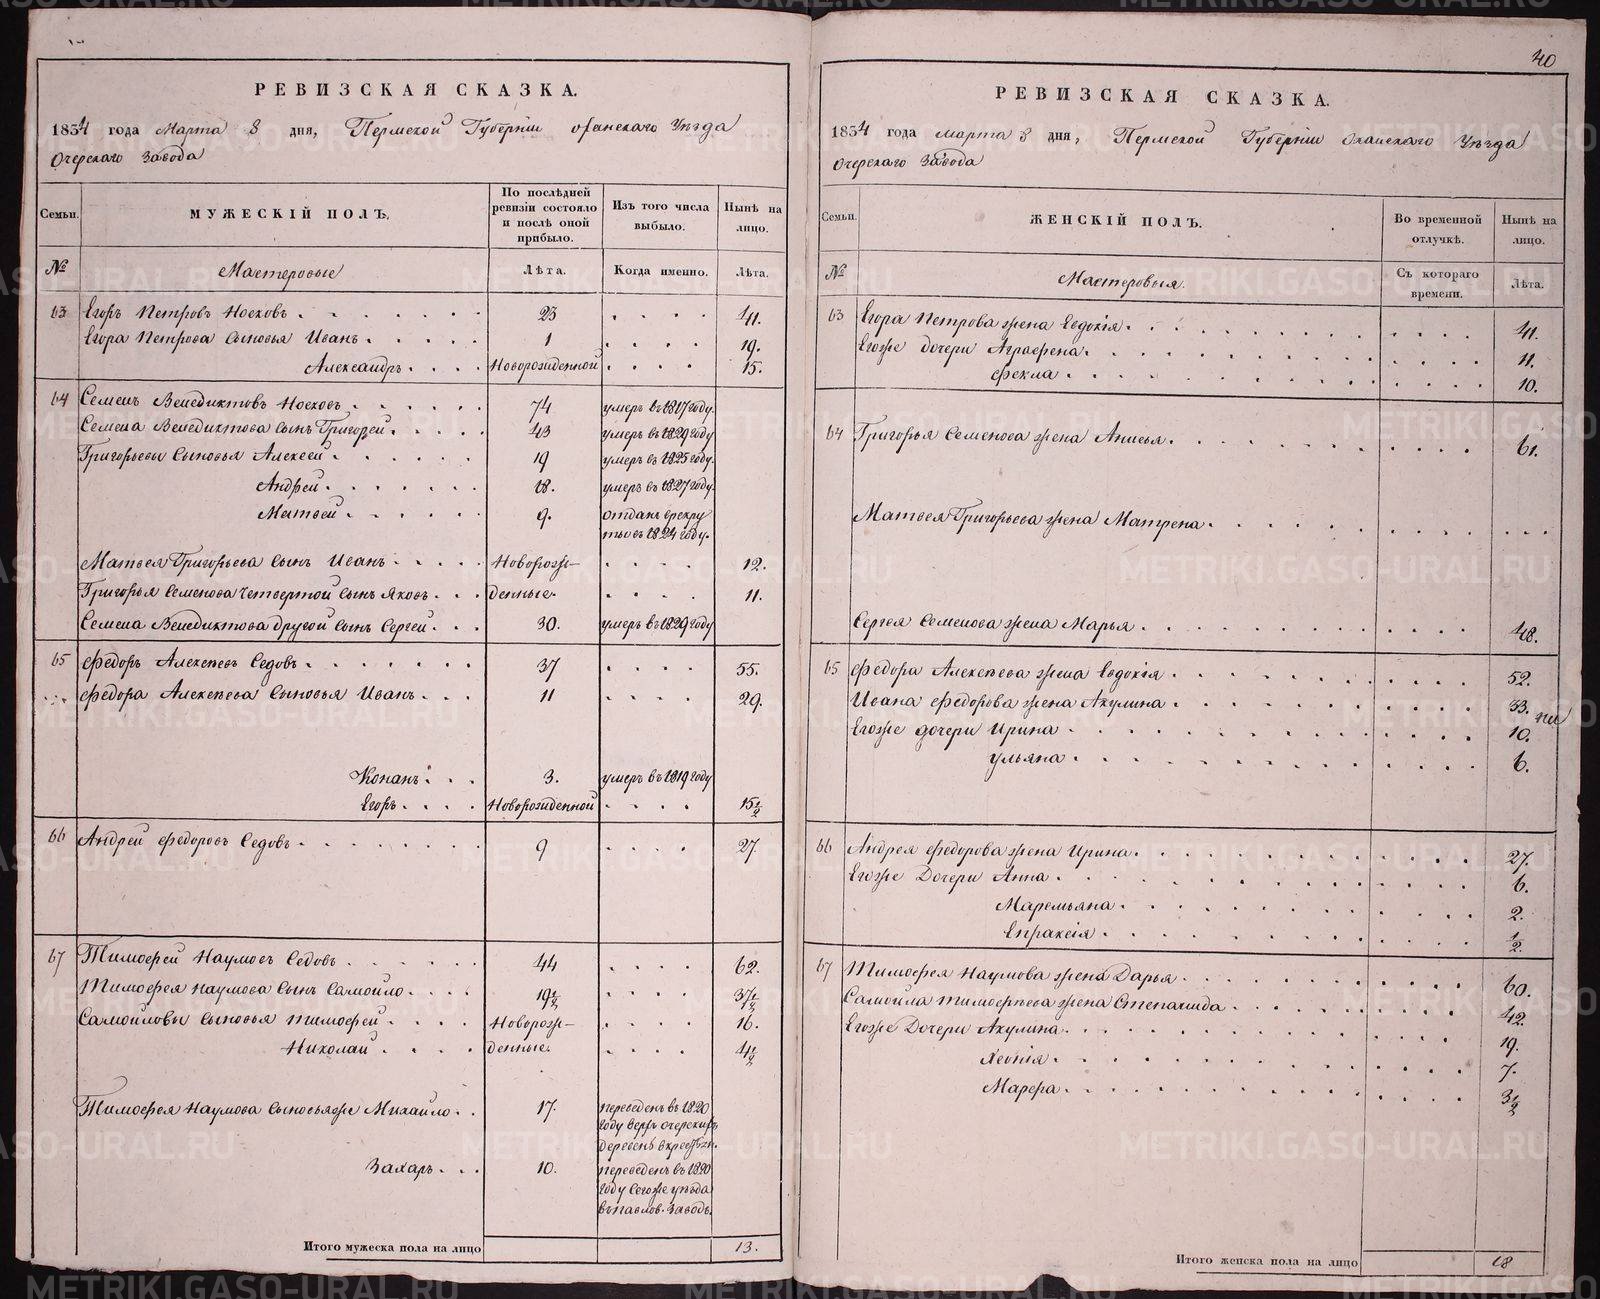 40
РЕВИЗСКАЯ СКАЗКА.
1834 года Марта 8 дня, Пермской Губерніи Оханскаго Уѣзда
Очерскаго Завода
Семьи.
МУЖЕСКІЙ ПОЛЪ.
По послѣдней ревизіи состояло и послѣ оной прибыло.
Изъ того числа выбыло.
Нынѣ на лицо.
№ Мастеровые Лѣта. Когда именно. Лѣта.
63 Егоръ Петровъ Носковъ 23 41.
Егора Петрова сыновья Иванъ 1 19.
Александръ Новорожденной 15.
64 Семенъ Венедиктовъ Носковъ 74 умеръ въ 1817 году.
Семена Венедиктова сынъ Григорей 43 умеръ въ 1829 году
Григорьевы сыновья Алексей 19 умеръ въ 1825 году.
Андрей 18. умеръ въ 1827 году.
Матвей 9. отданъ врекру
ты въ 1824 году.
Матвея Григорьева сынъ Иванъ Новорож- 12.
Григорья Семенова четвертой сынъ Яковъ денные. 11.
Семена Венедиктова другой сынъ Сергей 30. умеръ въ 1829 году
65 Федоръ Алексеевъ Седовъ 37 55.
Федора Алексеева сыновья Иванъ 11 29.
Конанъ 3. умеръ въ 1819 году
Егоръ Новорожденной 15½
66 Андрей Федоровъ Седовъ 9 27
67 Тимофей Наумовъ Седовъ 44 62.
Тимофея Наумова сынъ Самойло 19½ 37½
Самойловы сыновья Тимофей Новорож- 16.
Николай денные. 4½
Тимофея Наумова сыновьяже Михайло 17. переведенъ въ 1820
году верхъ очерскихъ
деревень вкрестьян.
Захаръ 10. переведенъ въ 1820
году Сегоже уѣзда
въ павлов. заводъ.
Итого мужеска пола на лицо 13.
РЕВИЗСКАЯ СКАЗКА.
1834 года марта 8 дня, Пермской Губерніи Оханскаго Уѣзда
Очерскаго Завода
Семьи.
ЖЕНСКІЙ ПОЛЪ.
Во временной отлучкѣ.
Нынѣ на лицо.
№ Мастеровыя. Съ котораго времени. Лѣта.
63 Егора Петрова жена Евдокія 41.
Егоже дочери Аграфена 11.
Фекла 10.
64 Григорья Семенова жена Анисья 61.
Матвея Григорьева жена Матрена
Сергея Семенова жена Марья 48.
65 Федора Алексеева жена Евдокія 52.
Ивана Федорова жена Акулина 33.
Егоже дочери Ирина 10.
Ульяна 6.
66 Андрея Федорова жена Ирина 27.
Егоже Дочери Анна 6.
Маремьяна 2.
Епраксія ½
67 Тимофея Наумова жена Дарья 60.
Самойла Тимофеева жена Степанида 42.
Егоже Дочери Акулина 19.
Хеонія 7.
Марфа 3½
Итого женска пола на лицо 18
METRIKI.GASO-URAL.RU